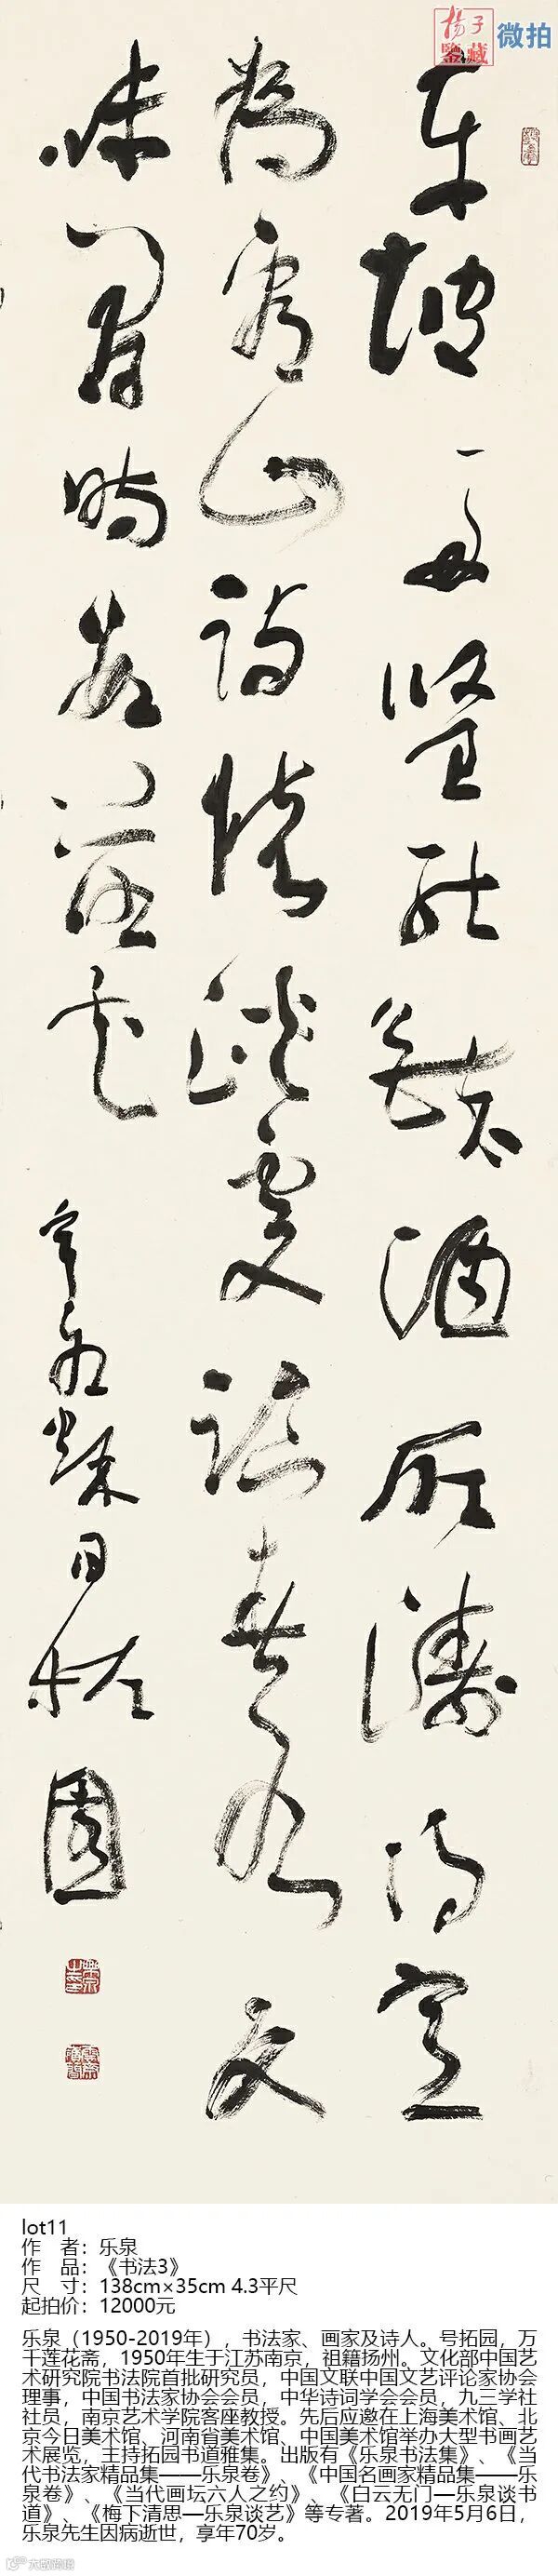 杨子
鉴藏
微拍
东坡
酒所
得意
为看山诗情
文
味闲时
花
辛卯秋日拓园
lot11
作 者：乐泉
作 品：《书法3》
尺 寸：138cm×35cm 4.3平尺
起拍价：12000元
乐泉（1950-2019年），书法家、画家及诗人。号拓园，万
千莲花斋，1950年生于江苏南京，祖籍扬州。文化部中国艺
术研究院书法院首批研究员，中国文联中国文艺评论家协会
理事，中国书法家协会会员，中华诗词学会会员，九三学社
社员，南京艺术学院客座教授。先后应邀在上海美术馆、北
京今日美术馆、河南省美术馆、中国美术馆举办大型书画艺
术展览，主持拓园书道雅集。出版有《乐泉书法集》、《当
代书法家精品集——乐泉卷》、《中国名画家精品集——乐
泉卷》、《当代画坛六人之约》、《白云无门—乐泉谈书
道》、《梅下清思—乐泉谈艺》等专著。2019年5月6日，
乐泉先生因病逝世，享年70岁。